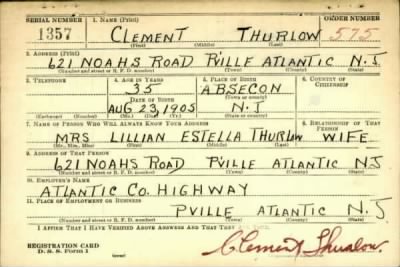 SERIAL NUMBER 1. NAME (Print) ORDER NUMBER
1357 CLEMENT THURLOW 575
(First) (Middle) (Last)
2. ADDRESS (Print)
621 NOAHS ROAD P'VILLE ATLANTIC N.J
(Number and street or R. F. D. number) (Town) (County) (State)
3. TELEPHONE 4. AGE IN YEARS 5. PLACE OF BIRTH 6. COUNTRY OF CITIZENSHIP
35 ABSECON
DATE OF BIRTH (Town or county)
AUG 23, 1905 N.J
(Mo.) (Day) (Yr.) (State or country)
7. NAME OF PERSON WHO WILL ALWAYS KNOW YOUR ADDRESS 8. RELATIONSHIP OF THAT PERSON
MRS LILLIAN ESTELLA THURLOW WIFE
(Mr., Mrs., Miss) (First) (Middle) (Last)
9. ADDRESS OF THAT PERSON
621 NOAHS ROAD P'VILLE ATLANTIC N.J
(Number and street or R. F. D. number) (Town) (County) (State)
10. EMPLOYER'S NAME
ATLANTIC CO. HIGHWAY
11. PLACE OF EMPLOYMENT OR BUSINESS
PVILLE ATLANTIC N.J
(Number and street or R. F. D. number) (Town) (County) (State)
I AFFIRM THAT I HAVE VERIFIED ABOVE ANSWERS AND THAT THEY ARE TRUE.
REGISTRATION CARD
D. S. S. Form 1 Clement Thurlow